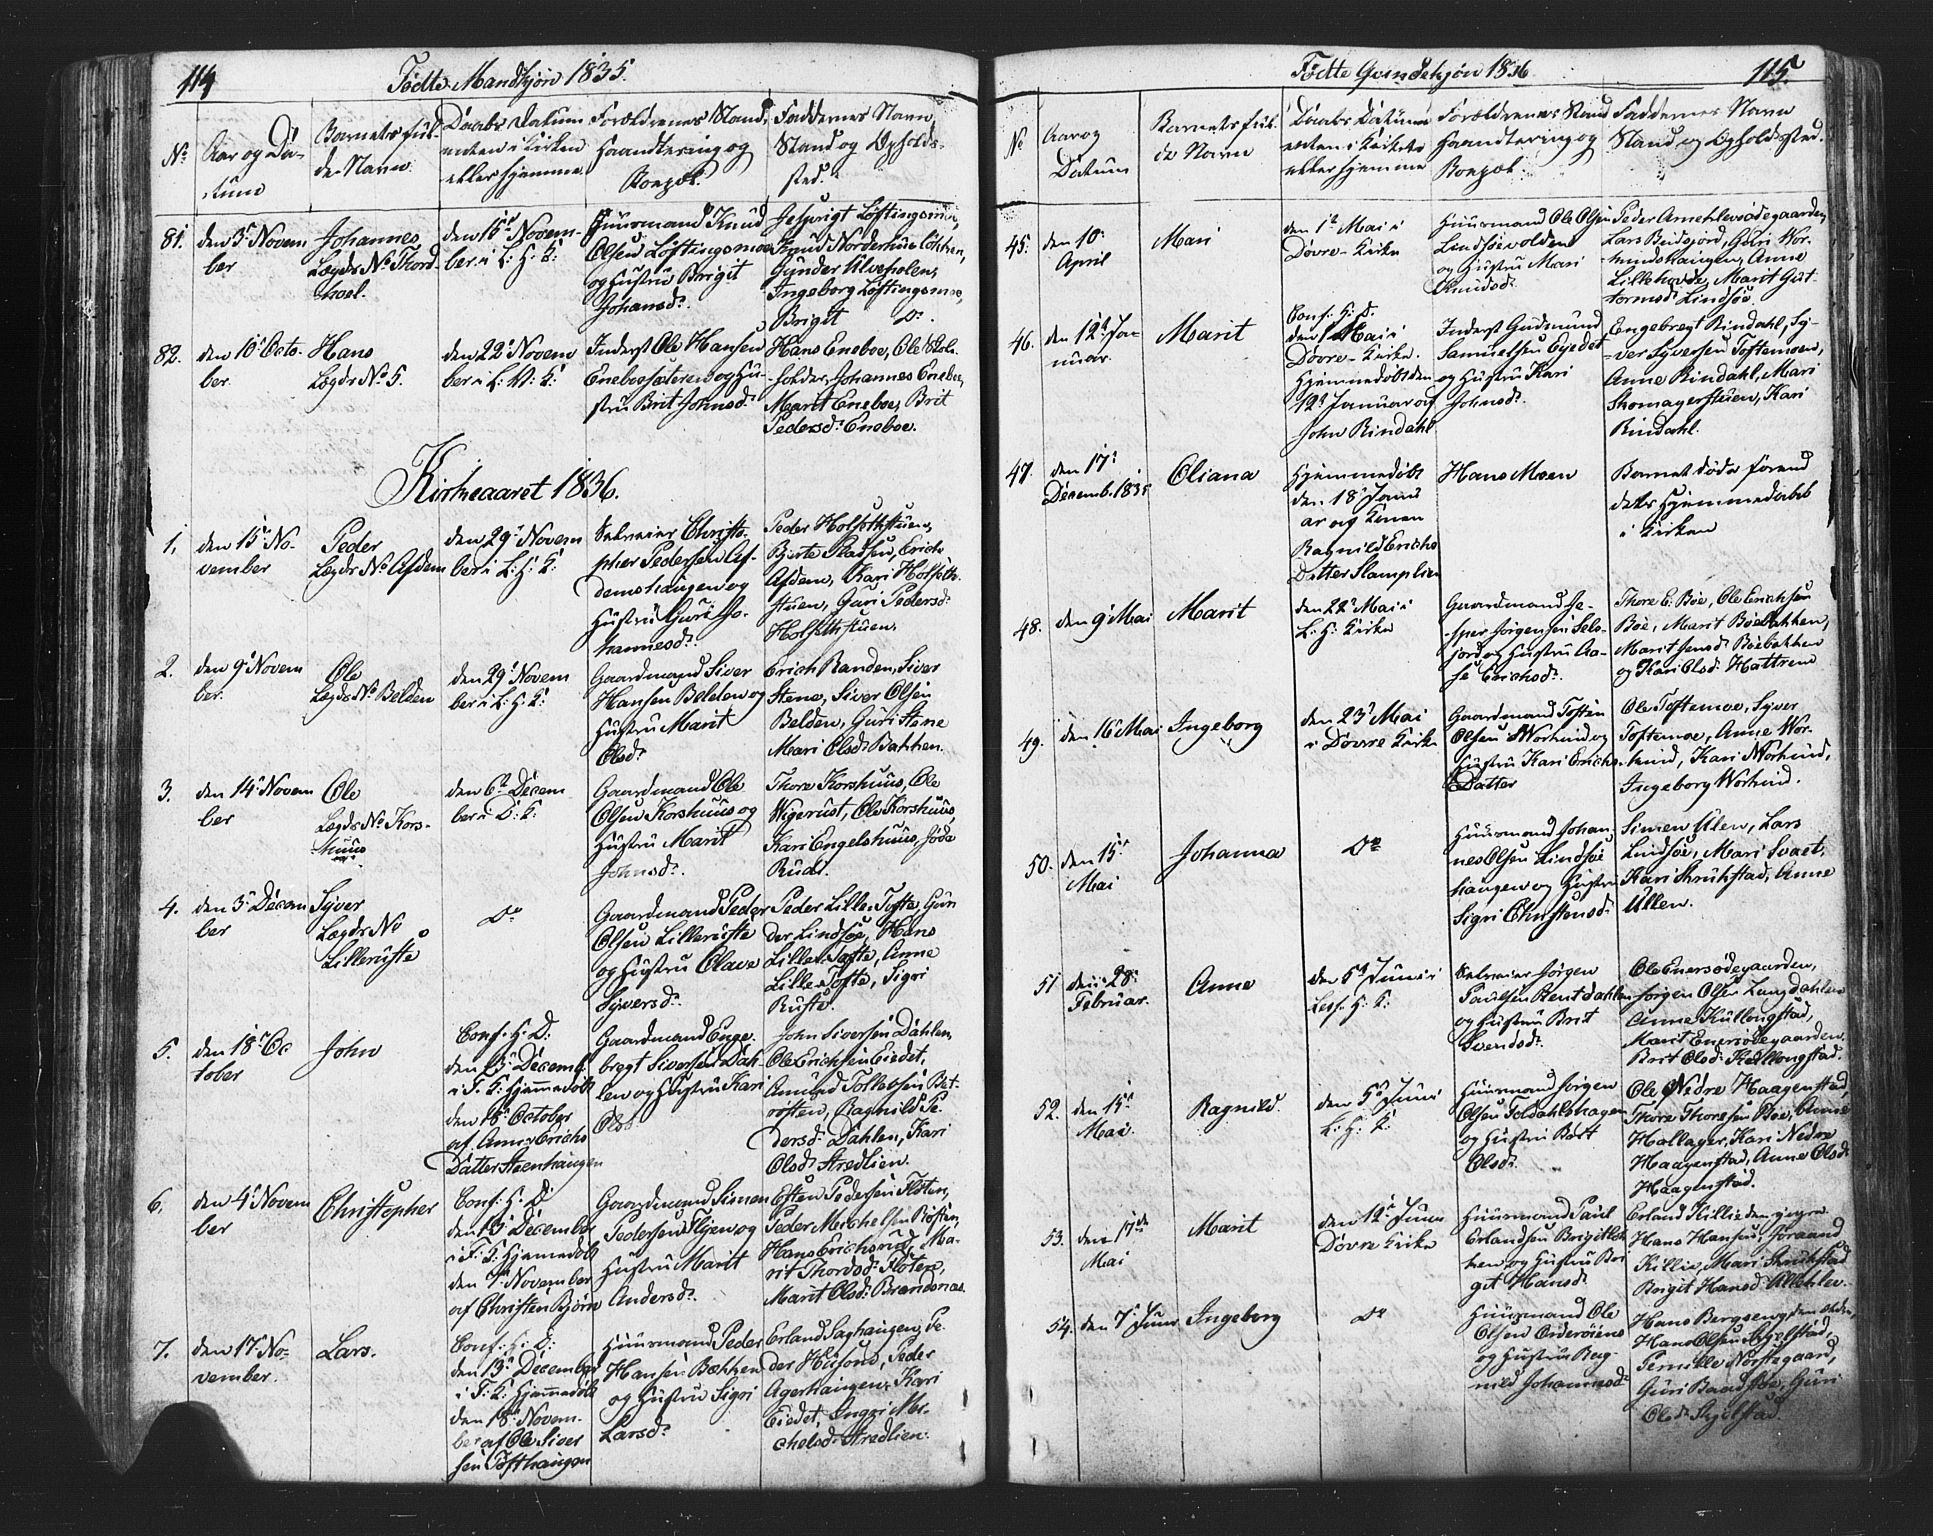 114
Födte Mandkjön 1835.
No
Aar og Da-
tum
Barnets ful-
de Navn.
Daabs Datum
enten i Kirken
eller hjemme
Forældrenes Stand,
Haandtering og
Boepæl.
Faddernes Navn,
Stand og Opholds-
sted.
81.
den 3d Novem
ber
Johannes
Lægds No Thord
hoel.
den 15d Novem-
ber i L: H: K:
Huusmand Knud
Olsen Löftingsmoe
og Hustru Brigit
Johansd:
Löftingsmoe,
Knud Nordermoe
Gunder Ulveholen,
Ingeborg Löftingsmoe,
Brigit Do.
82.
den 10d Octo-
ber
Hans
Lægds No 5.
den 22d Novem
ber i L: H: K:
Inderst Ole Hansen
Eneboesæteren og Hu-
stru Brit Johnsd:
Hans Eneboe, Ole Skol-
holder, Johannes Eneboe,
Marit Eneboe, Brit
Pedersd: Eneboe.
Kirkeaaret 1836.
1.
den 15d No-
vember
Peder
Lægds No Afdem
den 29d Novem
ber i L: H: K:
Selveier Christo-
pher Pedersen Af-
demshaugen og
Hustru Guri Jo-
hannesd:
Peder Holsethstuen,
Erich
Afdem, Kari Holseth-
stuen, Guri Pedersd:
Holsethstuen.
2.
den 9d Novem
ber.
Ole
Lægds No Belden
den 29d Novem
ber i L: H: K:
Gaardmand Siver
Hansen Belden og
Hustru Marit
Olsd:
Erich Randen, Siver
Stene, Siver Olsen
Belden, Guri Stene
Mari Olsd: Bakken.
3.
den 14d Novem
ber
Ole
Lægds No Kors-
huus
den 6te Decem
ber i D: K:
Gaardmand Ole
Olsen Korshuus og
Hustru Marit
Johnsd:
Thore Korshuus, Ole
Wigerust, Ole Korshuus,
Kari Engelshuus,
Rud.
4.
den 3d Decem
ber
Syver
Lægds No
Lilleruste
Do
Gaardmand Peder
Olsen Lilleruste
og Hustru Olave
Syversd:
Peder Lille-Tofte, Gun
der Lindsöe, Hans
Lille-Tofte, Anne
Lille-Tofte, Sigri
Ruste.
5.
den 18d Oc
tober
John
Conf: H: D:
den 13d Decemb.
i F: K: hjemmedöbt
den 18d October
af Anne Erichs
Datter Steenhaugen
Gaardmand Enge-
bregt Siversen Dah-
len og Hustru Kari
Olsd
John Siversen Dahlen,
Ole Erichsen Eiedet,
Amund Tollevsen Bet-
Ragnild Pe-
dersd: Dahlen, Kari
Olsd: Stredlien.
6.
den 4d Novem
ber
Christopher
Conf: H: D:
den 13d December
i F: K: hjemmedöbt
den 7d November
af Christen Björn
Gaardmand Simen
Pedersen Flyen og
Hustru Marit
Andersd:
Esten Pedersen Floten,
Peder Michelsen
Hans Erichsrud, Ma-
rit Thordsd: Floten,
Marit Olsd: Brændsnæs.
7.
den 17d No-
vember.
Lars.
Conf: H: D:
den 13d December
i F: K: hjemmedöbt
den 18d Novem-
ber af Ole Siver
sen Tofthaugen
Huusmand Peder
Hansen Bækken
og Hustru Sigri
Larsd:
Erland Saghaugen, Pe-
der Husom, Peder
Agerhaugen, Kari
Eiedet, Ingri Mi-
chelsd: Stredlien.
Födte Qvindekjön 1836
115.
No
Aar og
Datum
Barnets ful-
de Navn
Daabs Datum
enten i Kirken
eller hjemme
Forældrenes Stand
Haandtering og
Boepæl.
Faddernes Navn
Stand og Opholdssted.
45.
den 10d
April
Mari
den 1te Mai i
Dovre-Kirke
Huusmand Ole Olsen
Lindsöevolden
og Hustru Mari
Knudsd:
Peder
Lars Guri Wor-
kindshaugen, Anne
Marit Gut-
tormsd: Lindsöe.
46.
den 12d Ja-
nuar.
Marit
Conf: H: D.
den 1 Mai i
Dovre-Kirke.
hjemmedöbt den
12d Januar af
John Rindahl
Inderst Gudmund
Samuelsen Eyedet
og Hustru Kari
Johnsd:
Engebregt Rindahl, Sy-
ver Syversen Toftemoen,
Anne Rindahl, Mari
Skomagerstuen, Kari
Rindahl.
47.
den 17d
Decemb. 1835
Oliana
hjemmedöbt
den 18d Janu
ar af Konen
Ragnild Erichs
Datter Slamplien
Hans Moen
Barnet döde forend
dets hjemmedaab
i Kirken
48.
den 9d Mai
Marit
den 22d Mai i
L: H: Kirke
Gaardmand Je-
sper Jörgensen Sels-
jord og Hustru Aa-
se Erichsd:
Thore E: Böe, Ole Erichsen
Böe, Marit Böebakken,
Marit Jensd: Böebakken
og Kari Olsd: Hattrem
49.
den 16d Mai
Ingeborg
den 23d Mai
i Dovre Kirke
Gaardmand Tosten
Olsen Workind og
Hustru Kari Erichs
Datter
Ole Toftemoe, Syver
Toftemoe, Anne Wor-
kind, Kari Workind,
Ingeborg Workind.
50.
den 15d
Mai
Johanna
Do
Huusmand Johan
nes Olsen Lindsöe
haugen og Hustru
Sigri Christensd:
Simen Ulen, Lars
Lindsöe, Mari Svaet,
Kari Skrukstad, Anne
Ullen.
51
den 28d
Februar.
Anne
den 5d Junii i
Lesj: H: K:
Selveier Jörgen
Paulsen Bentdahlen
og Hustru Brit
Svendsd:
Ole Enersödegaarden,
Jörgen Olsen Langdahlen
Anne Killongstad,
Marit Enersödegaarden,
Brit Olsd: Killongstad.
52.
den 15d
Mai.
Ragnild.
den 5d Juni
L: H: K:
Huusmand Jörgen
Olsen Toldahlshagen
og Hustru Brit
Olsd:
Ole Nedre Haagenstad,
Thore Thoresen Böe, Anne
Hallager, Kari Nedre
Haagenstad, Anne Olsd:
Haagenstad.
53.
den 17de
Mai
Marit
den 12d Juni
Dovre Kirke
Huusmand Paul
Erlandsen Brigitbæ
ken og Hustru Bri
git Hansd:
Erland Killie den yngre
Hans Hansen, Joraand
Killie, Mari Skrukstad
Brigit Hansd: Ulleklev.
54.
den 7d Juni
Ingeborg
Do
Huusmand Ole
Olsen
og Hustru Rag-
nild Johannesd:
Hans Bergseng den elden,
Hans Olsen Skjelstad,
Pernille Norstegaard,
Guri Baadstöe, Guri
Olsd: Skjelstad.